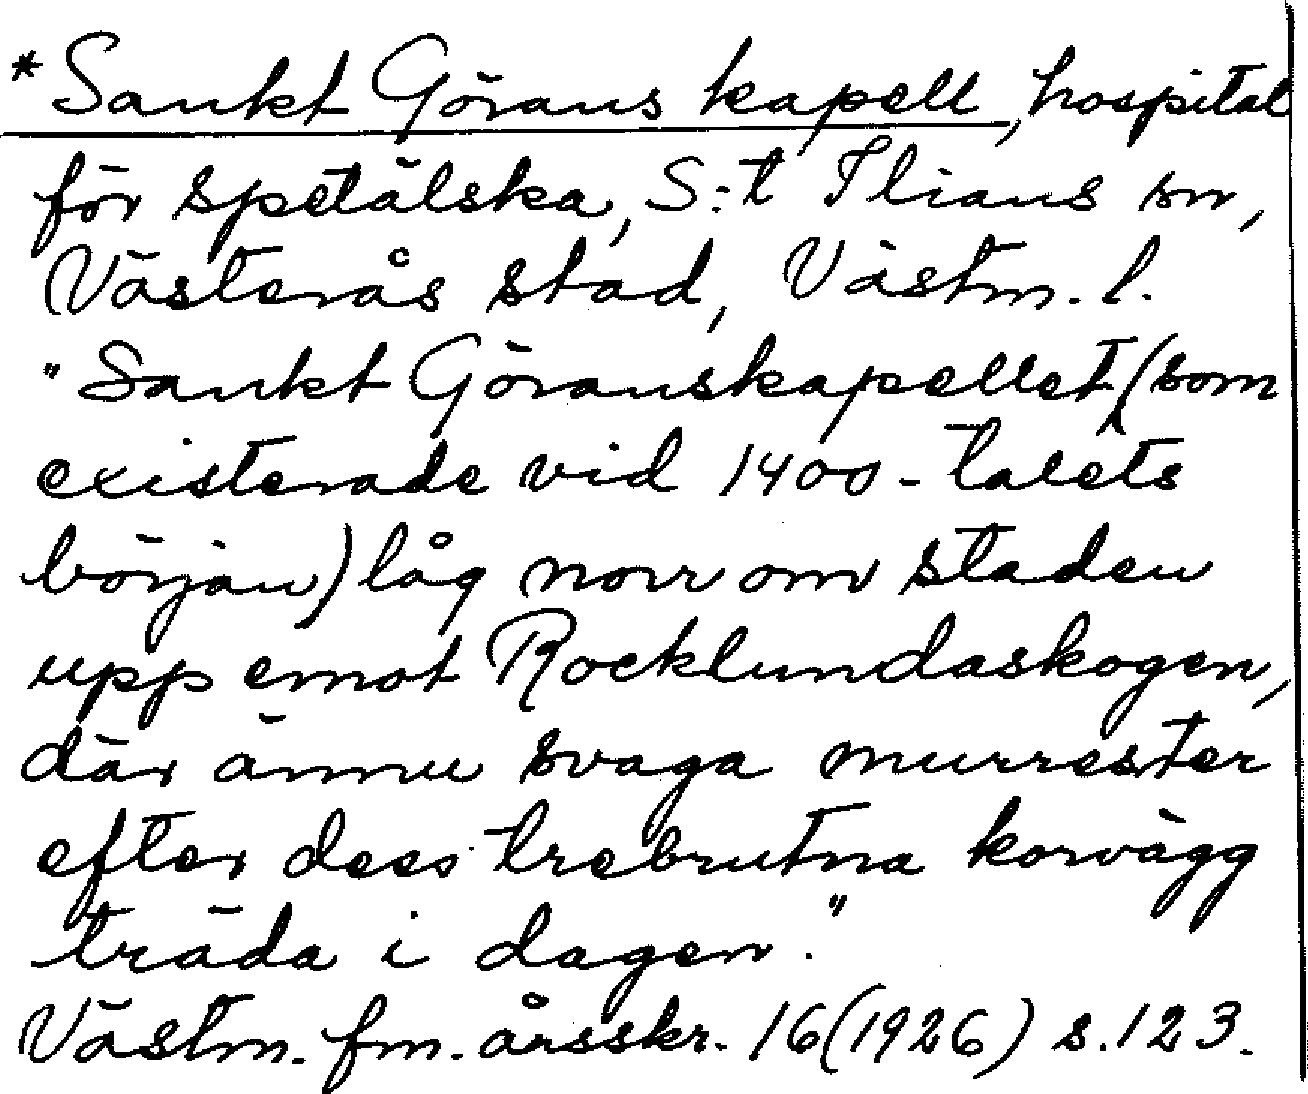 *Sankt Görans kapell, hospital
för spetälska, S:t Ilians sn,
Västerås stad, Västm. l.
"Sankt Göranskapellet (som
existerade vid 1400-talets
början) låg norr om staden
upp emot Rocklundaskogen,
där ännu svaga murrester
efter dess trebrutna korvägg
träda i dagen."
Västm. fm. årsskr. 16 (1926) s. 123.